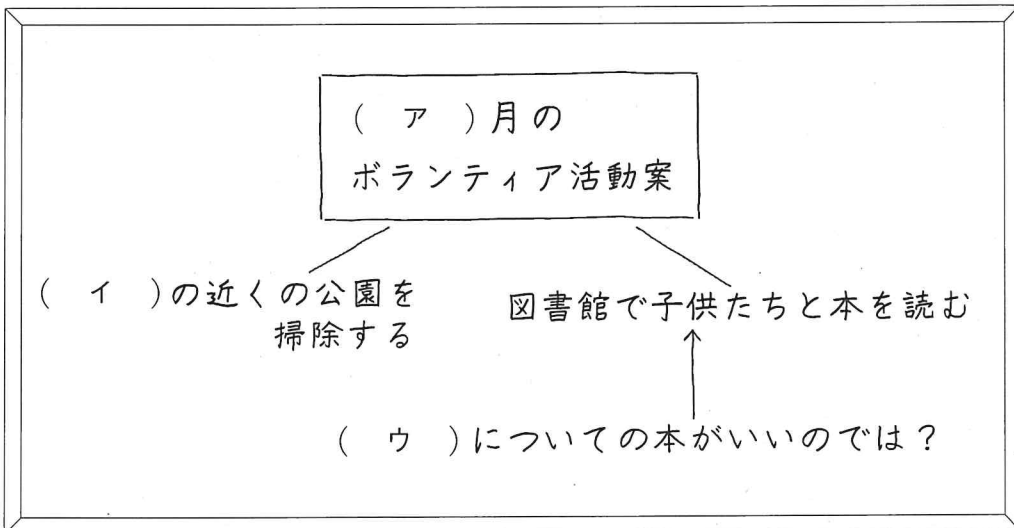 ( ア )月の
ボランティア活動案
( イ )の近くの公園を
掃除する
図書館で子供たちと本を読む
( ウ )についての本がいいのでは?